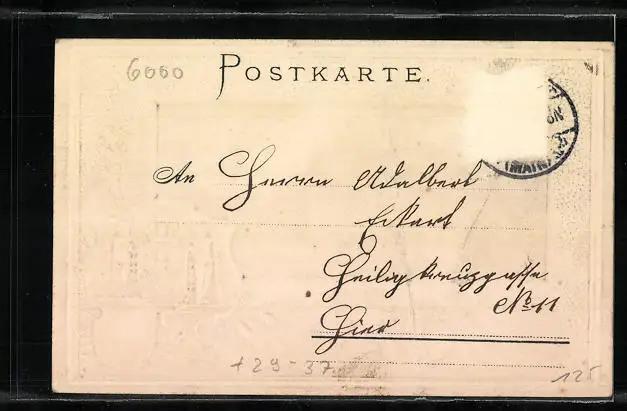 6000
POSTKARTE.
(MAIN)
An Herrn Adalbert
Eckart
Heiligkreuzgasse
No 11
Hier
+29-37
125